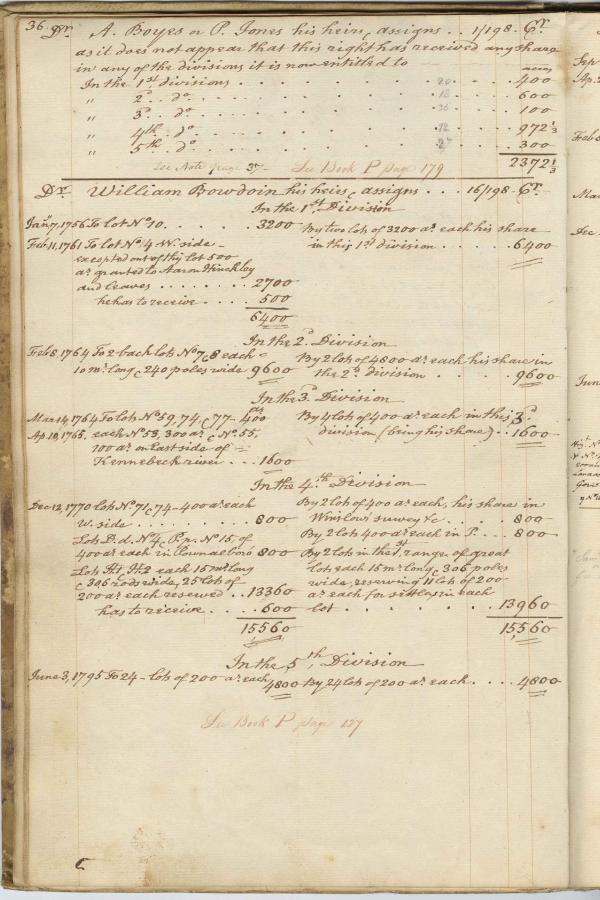 36. Dr. A. Boyes or P. Jones his heirs, assigns . . 1/198. Cr.
as it does not appear that this right has received any share
in any of the divisions it is now entitled to acres
In the 1st divisions . . . 20 . . 400
" 2d. do. . . . 18 . . 600
" 3d. do. . . . 36 . . 100
" 4th. do. . . . 12 . . 972 1/3
" 5th. do. . . . 27 . . 300
See Note page 37- See Book P page 179 2372 1/3
Dr. William Bowdoin his heirs, assigns . . . 16/198. Cr.
In the 1st. Division
Jany. 7, 1756 To lot No. 10. . . . . . 3200 By two lots of 3200 as. each his share
Feb 11, 1761 To lot No. 4 W. side - in this 1st division . . . . . 6400
excepted out of this lot 500
as. granted to Aaron Hinckley
and leaves . . . . . . . . 2700
he has to receive . . . . 500
6400
In the 2d. Division
Feb 8, 1764 To 2 back lots No. 7, & 8 each By 2 lots of 4800 as. each his share in
10 ms. long, & 240 poles wide 9600 the 2d. division . . . . 9600
In the 3d. Division
Mar 14, 1764 To lots No. 59, 74, & 77- 400 as By 4 lots of 400 as. each in this 3d.
Ap. 10, 1765, each No. 53, 300 as. & No. 55, division (being his share) . . 1600
100 as. on East side of
Kennebeck river . . . 1600
In the 4th. Division
Dec 12, 1770 lots No. 71, & 74 - 400 as. each By 2 lots of 400 as. each, his share in
W. side . . . . . . . . . 800 Winslow's survey &c . . . . 800
Lots D. d. No. 4, & P. p. No. 15, of By 2 lots 400 as. each in P. . . 800
400 as. each in Pownalboro' 800 By 2 lots in the 1st. range of great
Lots H 1, H 2 each 15 ms. long lots each 15 ms. long, & 306 poles
& 306 rods wide, 25 lots of wide, reserving 11 lots of 200
200 as. each reserved . . 13360 as. each for settlers in each
has to receive . . . . 600 lot . . . . . . . 13960
15,560 15,560
In the 5th, Division
June 3, 1795 To 24 - lots of 200 as. each, 4800 By 24 lots of 200 as. each . . . . 4800
See Book P page 127